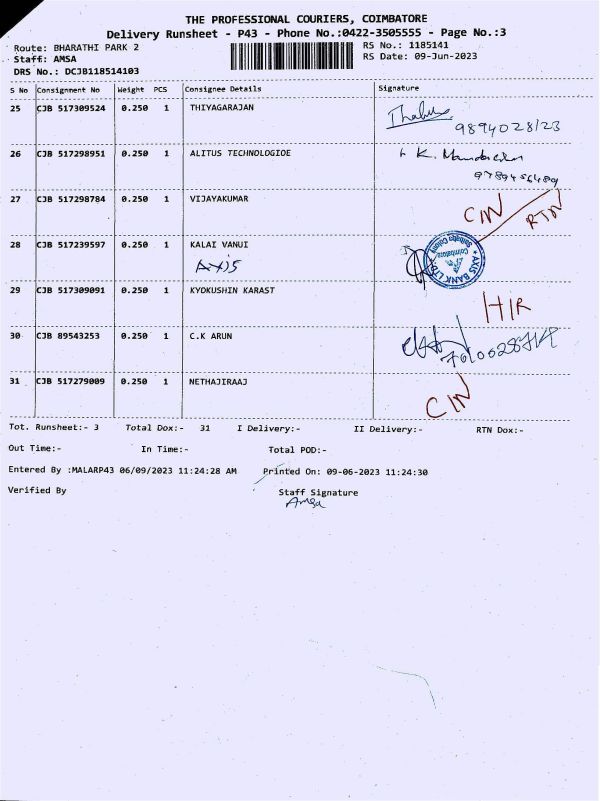 THE PROFESSIONAL COURIERS, COIMBATORE
Delivery Runsheet - P43 - Phone No.:0422-3505555 - Page No.:3
Route: BHARATHI PARK 2 RS No.: 1185141
Staff: AMSA RS Date: 09-Jun-2023
DRS No.: DCJB118514103
S No Consignment No Weight PCS Consignee Details Signature
25 CJB 517309524 0.250 1 THIYAGARAJAN
9894028123
26 CJB 517298951 0.250 1 ALITUS TECHNOLOGIOE
K.
9789456489
27 CJB 517298784 0.250 1 VIJAYAKUMAR CIN RTN
28 CJB 517239597 0.250 1 KALAI VANUI
AXIS
AXIS BANK LTD. Coimbatore
29 CJB 517309091 0.250 1 KYOKUSHIN KARAST
H/R
30 CJB 89543253 0.250 1 C.K ARUN
31 CJB 517279009 0.250 1 NETHAJIRAAJ
CIN
Tot. Runsheet:- 3 Total Dox:- 31 I Delivery:- II Delivery:- RTN Dox:-
Out Time:- In Time:- Total POD:-
Entered By :MALARP43 06/09/2023 11:24:28 AM Printed On: 09-06-2023 11:24:30
Verified By Staff Signature
Amsa